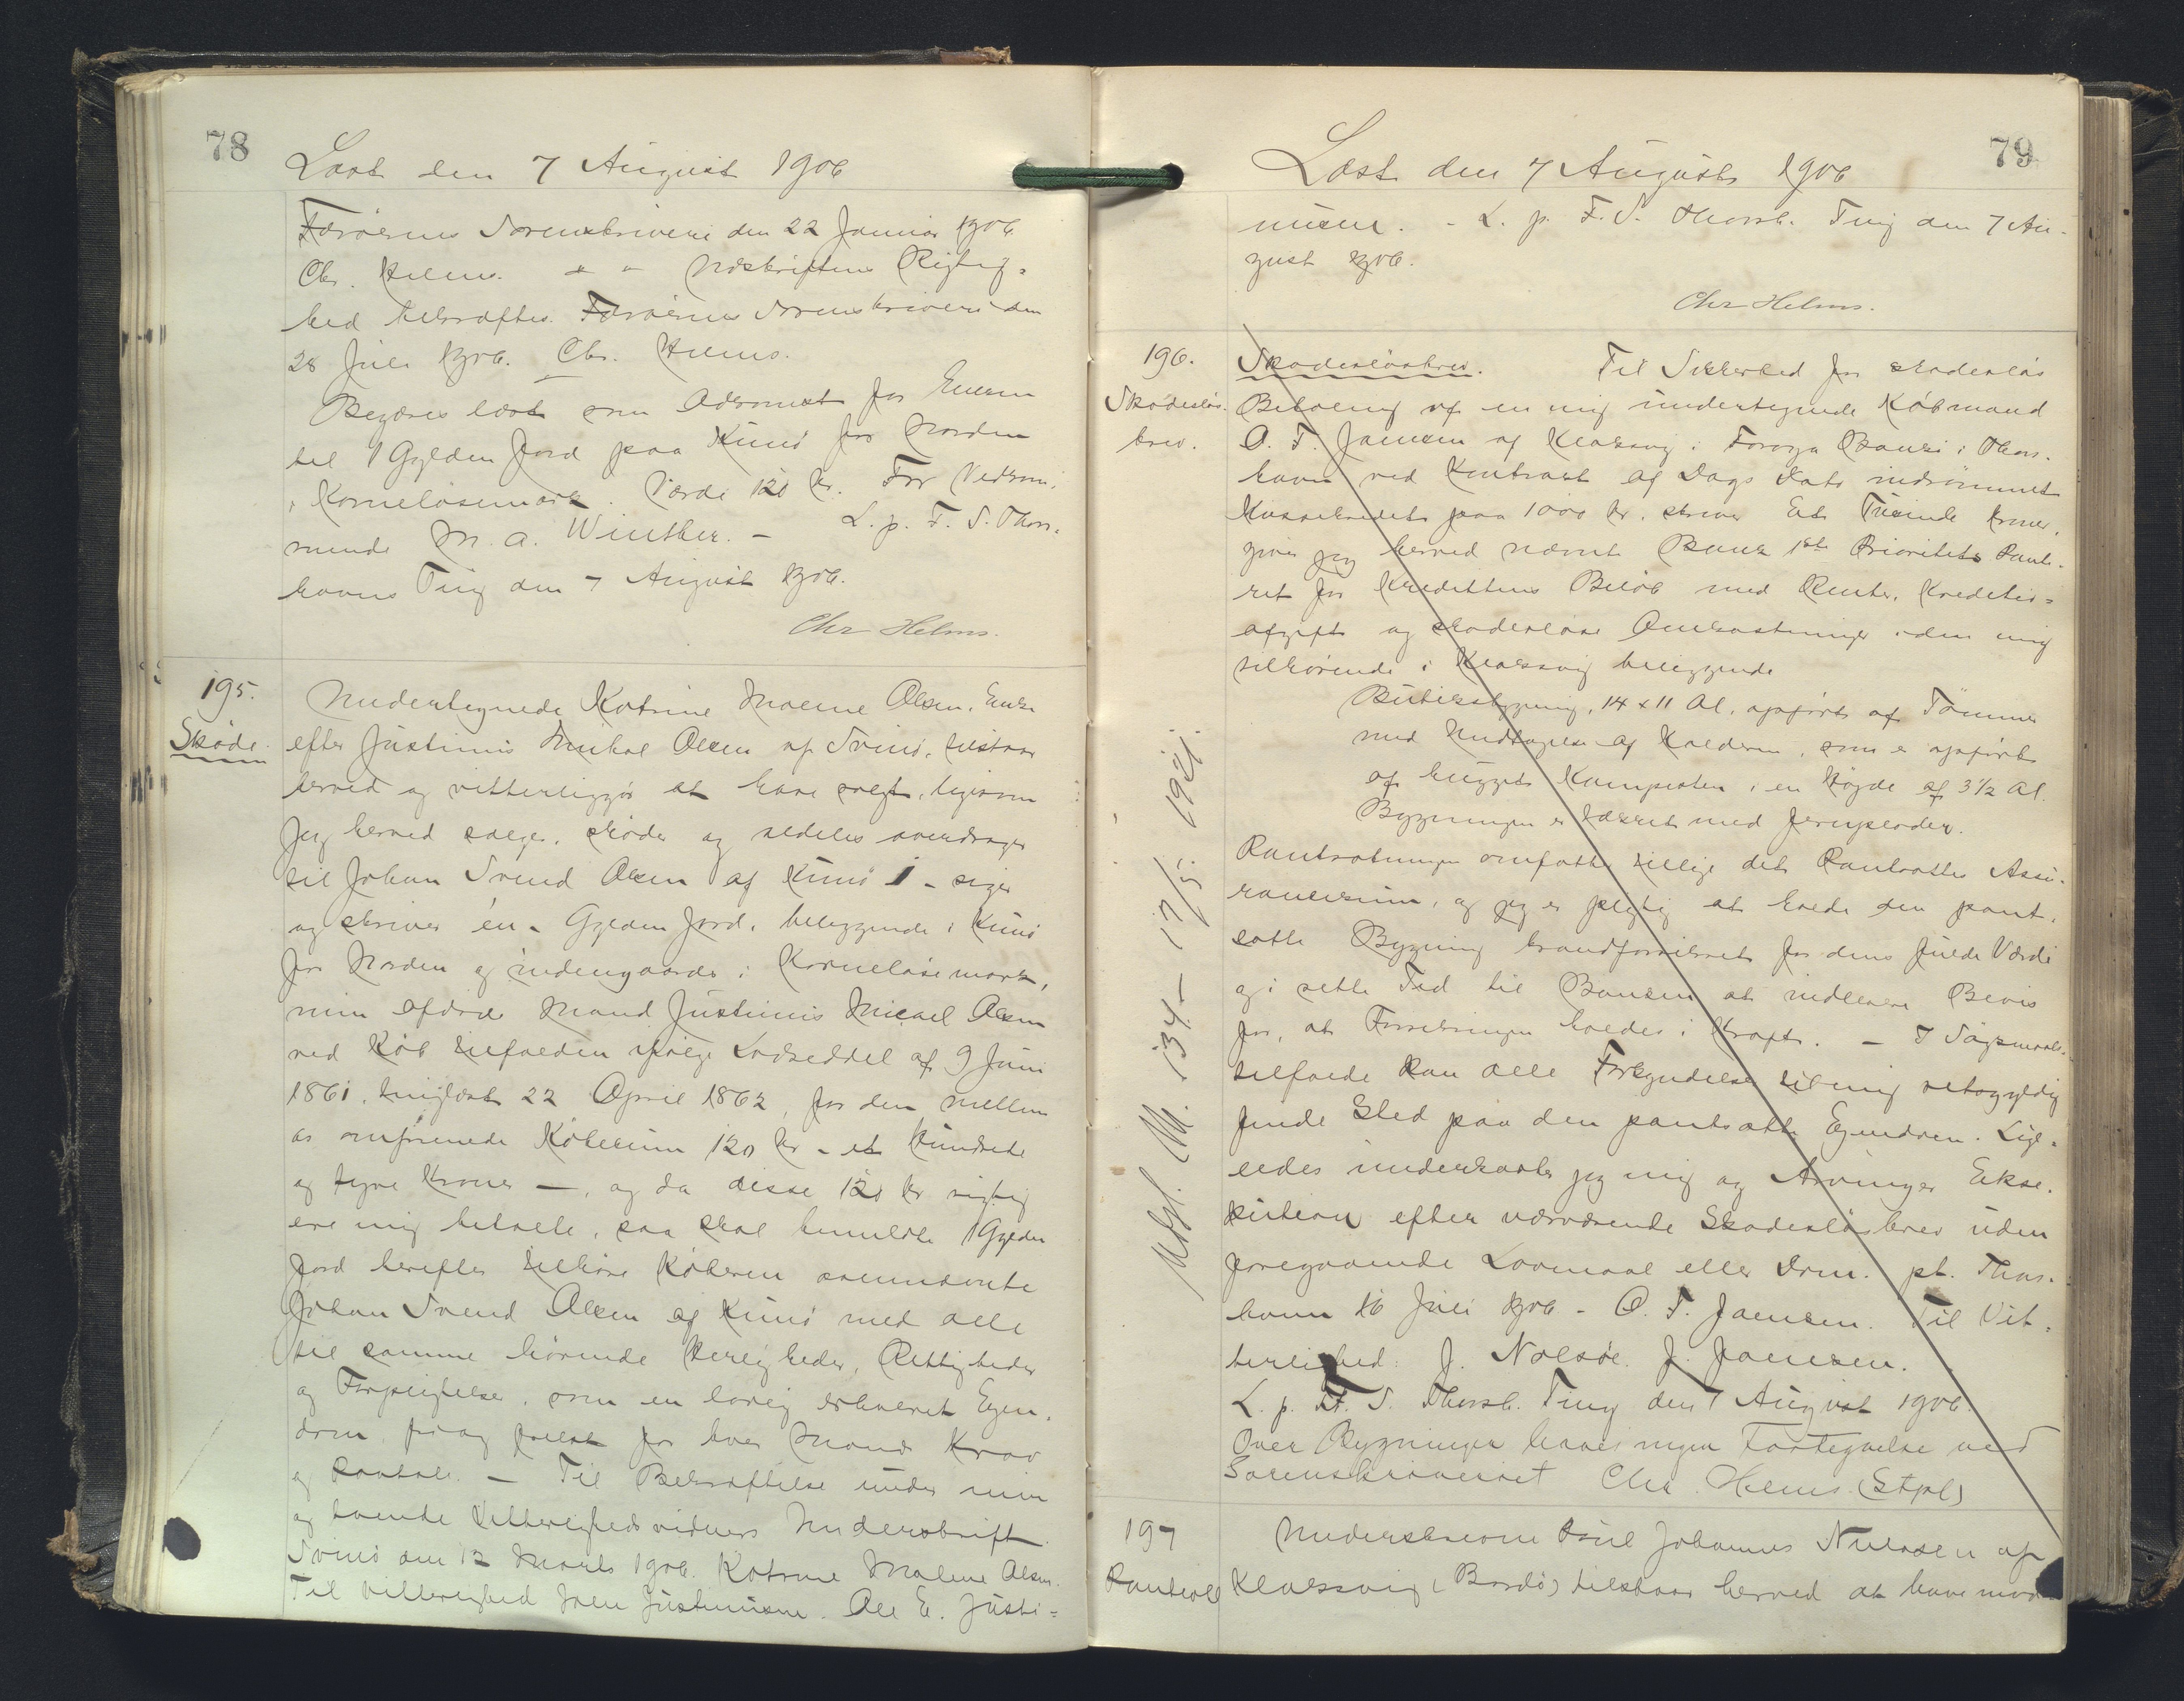 78
Læst den 7 August 1906
Færøernes Sorenskriveri den 22 Januar 1906
Chr. Helms. Udskriftens Rigtig-
hed bekræftes. Færøernes Sorenskriveri den
28 Juli 1906. Chr. Helms.
Begæres læst som Adkomst for Enken
til 1 Gylden Jord paa Kunø for Norden
i Korneliusemark. Værdi 120 Kr. For Vedkom-
mende M. A. Winther. - L. p. F. S. Thors-
havns Ting den 7 August 1906.
Chr Helms.
195.
Skøde.
Undertegnede Katrine Malene Olsen, Enke
efter Justinus Mikal Olsen af Svinø, tilstaar
herved og vitterliggjør at have solgt, ligesom
jeg herved sælger, skøder og aldeles overdrager
til Johan Svend Olsen af Kunø 1 - siger
og skriver én - Gylden Jord, beliggende i Kunø
for Norden og indengaards i Korneliusemark,
min afdøde Mand Justinus Micael Olsen
ved Køb tilfalden ifølge Lodseddel af 9 Juni
1861, tinglæst 22 April 1862, for den mellem
os omforenede Købesum 120 Kr - et Hundrede
og tyve Kroner -, og da disse 120 Kr rigtig
ere mig betalte, saa skal bemeldte 1 Gylden
Jord herefter tilhøre Køberen ovennævnte
Johan Svend Olsen af Kunø med alle
til samme hørende Herligheder, Rettigheder
og Forpligtelser, som en lovlig erhvervet Ejen-
dom, fri og frelst for hver Mands Krav
og Paatale. - Til Bekræftelse under min
og tvende Vitterlighedsvidners Underskrift.
Svinø den 12 Marts 1906. Katrine Malene Olsen.
Til Vitterlighed Joen Justinusen. Ole E. Justi-
79
Læst den 7 August 1906
nusen. - L. p. F. S. Thorsh. Ting den 7 Au-
gust 1906.
Chr Helms.
196.
Skadesløs-
brev.
Skadesløsbrev. Til Sikkerhed for skadesløs
Betaling af en mig undertegnede Købmand
O. F. Joensen af Klaksvig i Føroya Banki i Thors-
havn ved Kontrakt af Dags Dato indrømmet
Kassekredit paa 1000 Kr. skriver Et Tusinde Kroner,
giver jeg herved nævnte Bank 1ste Prioritets Pante-
ret for Kredittens Beløb med Renter, Kreditis-
afgift og skadesløse Omkostninger i den mig
tilhørende i Klaksvig beliggende
Butiksbygning, 14 x 11 Al, opført af Tømmer
med Undtagelse af Kælderen, som er opført
af hugget Kampesten i en Højde af 3½ Al.
Bygningen er tækket med Jernplader.
Pantsætningen omfatter tillige det Pantsattes Assu-
rancesum, og jeg er pligtig at holde den pant-
satte Bygning brandforsikret for dens fulde Værdi
og i rette Tid til Banken at indlevere Bevis
for, at Forsikringen holdes i Kraft. - I Søgsmaals-
tilfælde kan alle Forkyndelser til mig retsgyldig
finde Sted paa den pantsatte Ejendom. Lige-
ledes underkaster jeg mig og Arvinger Ekse-
kution efter nærværende Skadesløsbrev uden
foregaaende Lovmaal eller Dom. pt. Thors-
havn 16 Juli 1906 - O. F. Joensen. Til Vit-
terlighed: J. Nolsøe. J. Joensen.
L. p. F. S. Thorsh. Ting den 7 August 1906.
Over Bygningen haves ingen Fortegnelse ved
Sorenskriveriet Chr. Helms (Stpl)
Udsl. M. 134 - 17/5. 1921.
197
Panteobl
Underskrevne Poul Johannes Nielsen af
Klaksvig (Bordø) tilstaar herved at have mod-